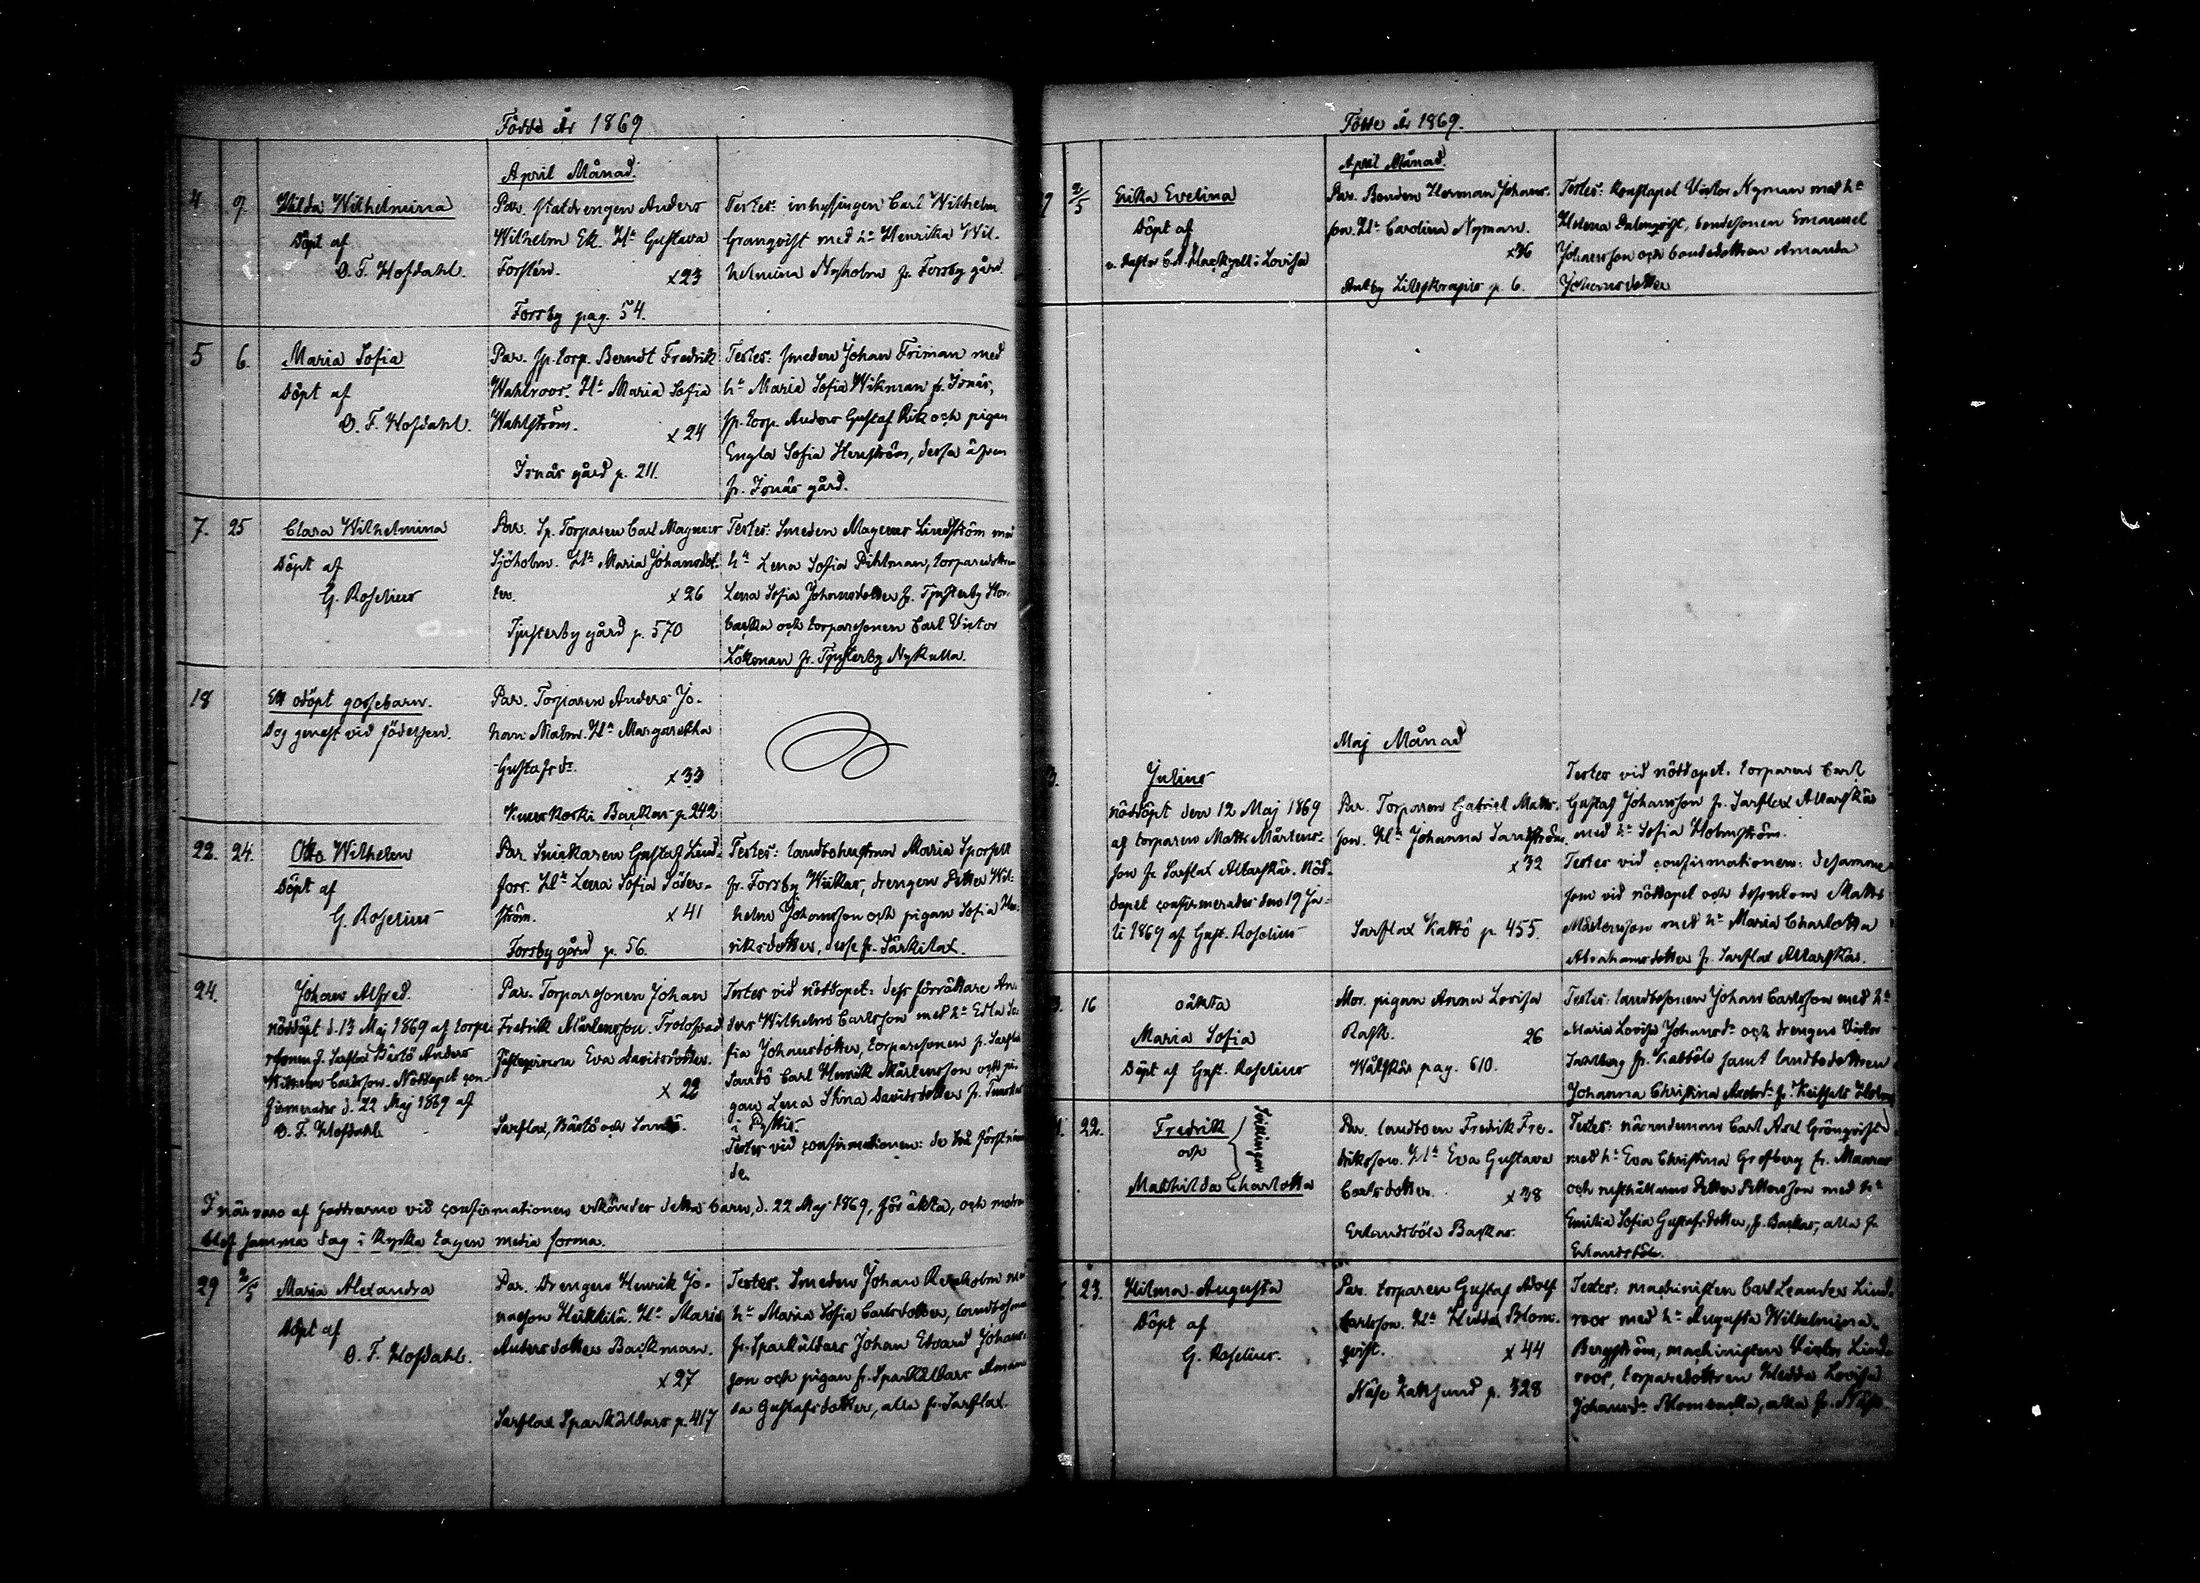 Födde År 1869
April Månad.
4 9. Hilda Wilhelmina
Döpt af
O. F. Hofdahl.
Par. Statdrengen Anders
Wilhelm Ek. H:u Gustava
Forstén.
x23
Forsby pag. 54.
Testes: inhysingen Carl Wilhelm
Granqvist med h:u Henrika Wil-
helmina Nyholm fr. Forsby gård
5 6. Maria Sofia
Döpt af
O. F. Hofdahl.
Par. Sp. torp. Berndt Fredrik
Wahlroos. H:u Maria Sofia
Wahlström.
x24
Isnäs gård p. 211.
Testes: smeden Johan Friman med
h:u Maria Sofia Wikman fr. Isnäs,
sp. torp. Anders Gustaf Rik och pigan
Engla Sofia Henström, dessa äfven
fr. Isnäs gård.
7. 25 Clara Wilhelmina
Döpt af
G. Roselius
Par. Sp. Torparen Carl Magnus
Sjöholm. H:u Maria Johansdot-
ter.
x26
Tjusterby gård p. 570
Testes: Smeden Magnus Lindström med
h:u Lena Sofia Pihlman, torparedottren
Lena Sofia Johansdotter fr. Tjusterby Stor-
backa och torparesonen Carl Victor
Lökman fr. Tjusterby Nykulla.
18 Ett odöpt gossebarn.
Dog genast vid födelsen.
Par. Torparen Anders Jo-
han Malm. H:u Margaretha
Gustafsdr.
x33
Kuuskoski Backas p. 242
22. 24. Otto Wilhelm
Döpt af
G. Roselius
Par. Snickaren Gustaf Lind-
fors. H:u Lena Sofia Söder-
ström.
x41
Forsby gård p. 56.
Testes: landbohustrun Maria
fr. Forsby Wickas, drengen Petter Wil-
helm Johansson och pigan Sofia Hen-
riksdotter, desse fr. Särkilax.
24. Johan Alfred.
nöddöpt d. 13 Maj 1869 af torpa-
resonen fr. Sarflax Bästö Anders
Wilhelm Carlsson. Nöddopet con-
firmerades d. 22 Maj 1869 af
O. F. Hofdahl
Par. Torparesonen Johan
Fredrik Mårtensson. Trolofvad
Fästeqvinna Eva Davidsdotter.
x 22
Sarflax, Bästö och
Testes vid nöddopet: dess förrättare An-
ders Wilhelm Carlsson med h:u Edla So-
fia Johansdotter, torparesonen fr. Sarflax
Sandö Carl Henrik Mårtensson och pi-
gan Lena Stina Davidsdotter fr.
i Pyttis.
Testes vid confirmationen: de två förstnämn-
de.
I närvaro af faddrarne vid confirmationen erkändes detta barn, d. 22 Maj 1869, för äkta, och modren
blef samma dag i kyrka tagen media forma.
29 2/5 Maria Alexandra
Döpt af
O. F. Hofdahl.
Par. Drengen Henrik Jo-
nasson Heikkilä. H:u Maria
Andersdotter Backman.
x27
Sarflax Sparkulldars p. 417
Testes: Smeden Johan Renholm med
h:u Maria Sofia Carlsdotter, landbosonen
fr. Sparkulldars Johan Edvard Johans-
son och pigan fr. Sparkulldars Aman-
da Gustafsdotter, alla fr. Sarflax.
Födde År 1869.
April Månad.
2/5 Erika Evelina
Döpt af
v. Pastor C. A. i Lovisa
Par. Bonden Herman Johans-
son. H:u Carolina Nyman.
x36
Antby Lillskrapus p. 6.
Testes: Konstapel Victor Nyman med h:u
Helena Palmqvist, bondesonen Emanuel
Johansson och bondedottren Amanda
Johansdotter
Maj Månad
Julius
nöddöpt den 12 Maj 1869
af torparen Matts Mårtens-
son fr. Sarflax Altarskär. Nöd-
dopet confirmerades den 19 Ju-
li 1869 af Gust. Roselius
Par. Torparen Gabriel Matts-
son. H:u Johanna Sandström.
x32
Sarflax Kattö p. 455.
Testes vid nöddopet: torparen Carl
Gustaf Johansson fr. Sarflax Altarskär
med h:u Sofia Holmström.
Testes vid confirmationen: desamme
som vid nöddopet och dessutom Matts
Mårtensson med h:u Maria Charlotta
Abrahamsdotter fr. Sarflax Altarskär.
16 oäkta
Maria Sofia
Döpt af Gust. Roselius
Mor. pigan Anna Lovisa
Rask.
26
Wålskär pag. 610.
Testes: landbosonen Johan Carlsson med h:u
Maria Lovisa Johansdr och drengen Victor
Sandberg fr. Kabböle samt landbodottren
Johanna Christina fr. Keitsals
22. Fredrik
och
Mathilda Charlotta
Tvillingar
Par. landboen Fredrik Fre-
driksson. H:u Eva Gustava
Carlsdotter.
x38
Erlandsböle Backas.
Testes: nämndeman Carl Axel Grönqvist
med h:u Eva Christina Grefberg fr.
och rusthållaren Petter Pettersson med h:u
Emilia Sofia Gustafsdotter, fr. Backas, alla fr.
Erlandsböle.
23. Hilma Augusta
Döpt af
G. Roselius.
Par. torparen Gustaf Adolf
Carlsson. H:u Hedda Blom-
qvist.
x44
Näse Kattsund p. 328
Testes: machinisten Carl Leander Lind-
roos med h:u Augusta Wilhelmina
Bergström, machinisten Victor Lind-
roos, torparedottren Hedda Lovisa
Johansdr Blombacka, alla fr. Näse